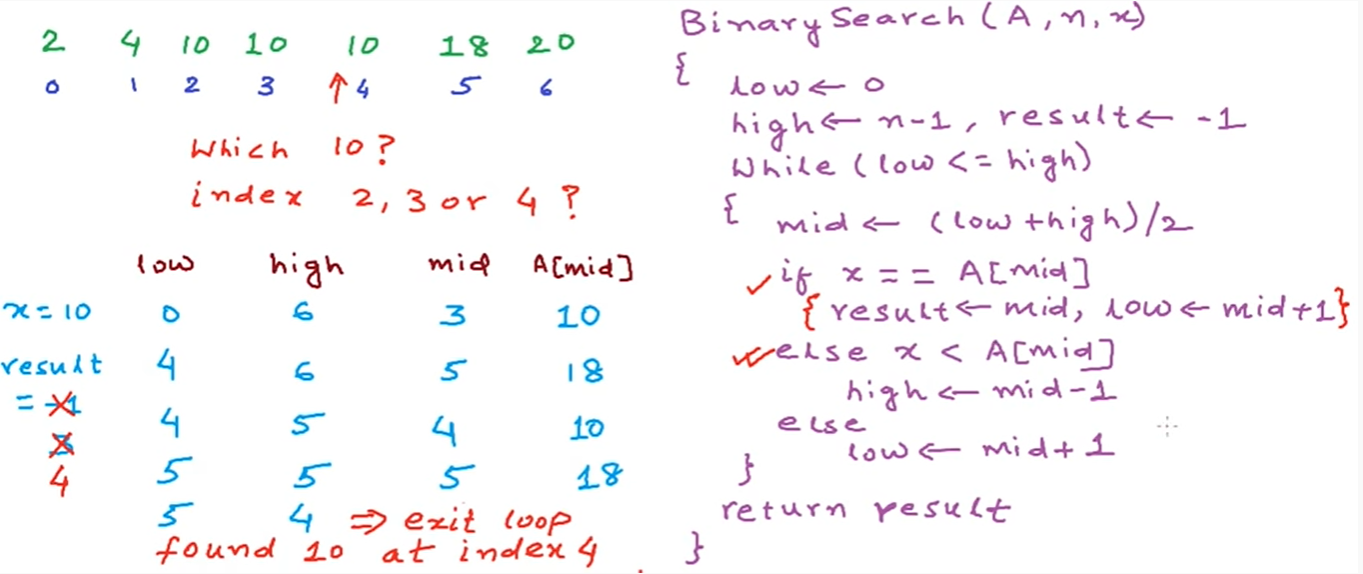 2 4 10 10 10 18 20
0 1 2 3 ↑4 5 6
Which 10?
index 2, 3 or 4 ?
low high mid A[mid]
x=10 0 6 3 10
result 4 6 5 18
= -1
4 5 4 10
3
4 5 5 5 18
5 4 ⇒ exit loop
found 10 at index 4
BinarySearch(A,n,x)
{
low ← 0
high ← n-1, result ← -1
While (low <= high)
{ mid ← (low+high)/2
if x == A[mid]
{result ← mid, low ← mid+1}
else x < A[mid]
high ← mid-1
else
low ← mid+1
}
return result
}